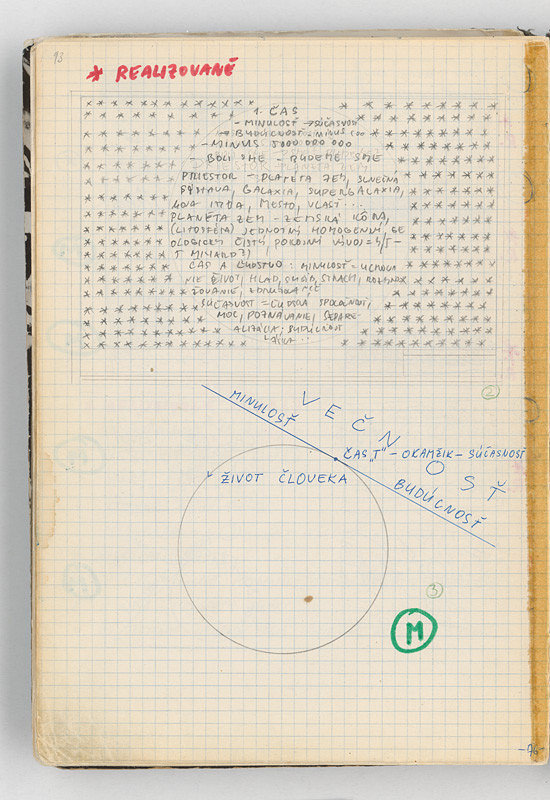 93
* REALIZOVANÉ
1. ČAS
- MINULOSŤ → SÚČASNOSŤ
→ BUDÚCNOSŤ - MÍNUS
- MINUS 5000 000 000
- BOLI SME - BUDEME SME
PRIESTOR - PLANÉTA ZEM, SLNEČNÁ
SÚSTAVA, GALAXIA, SUPERGALAXIA,
MESTO, VLASŤ...
PLANÉTA ZEM - ZEMSKÁ KÔRA,
(LITOSFÉRA) JEDNOTNÝ HOMOGÉNNY, GE
OLOGICKY ČISTÝ, POKOJNÝ VÝVOJ = 4/5-
ČAS A ĽUDSTVO: MINULOSŤ =
NIE ŽIVOT, HLAD, STRACH,
SÚČASNOSŤ = ĽUDSKÁ SPOLOČNOSŤ,
MOC, POZNÁVANIE,
ALIZÁCIA; BUDÚCNOSŤ
2
MINULOSŤ
VEČNOSŤ
ČAS „T" - OKAMŽIK - SÚČASNOSŤ
BUDÚCNOSŤ
ŽIVOT ČLOVEKA
3
M
-96-